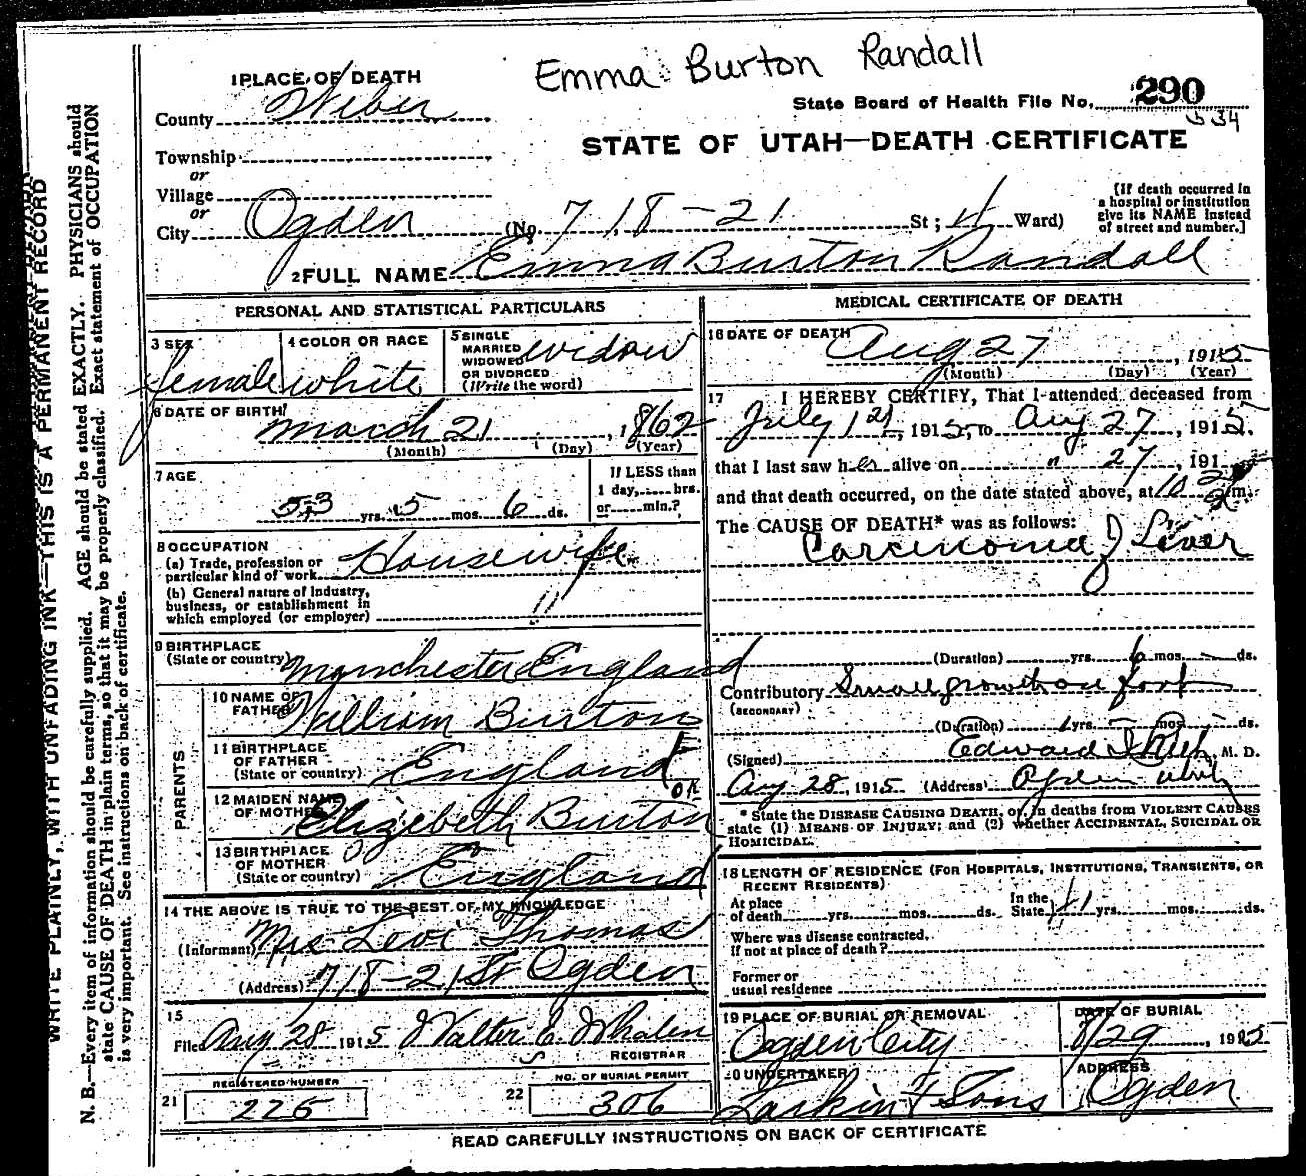 Emma Burton Randall
1 PLACE OF DEATH
State Board of Health File No. 290
534
County Weber
STATE OF UTAH—DEATH CERTIFICATE
Township
or
Village
or
City Ogden (No 718-21 St; 4 Ward)
[If death occurred in
a hospital or institution
give its NAME instead
of street and number.]
2 FULL NAME Emma Burton Randall
PERSONAL AND STATISTICAL PARTICULARS
3 SEX female
4 COLOR OR RACE white
5 SINGLE
MARRIED
WIDOWED
OR DIVORCED
(Write the word) widow
6 DATE OF BIRTH March 21, 1862
(Month) (Day) (Year)
7 AGE
53 yrs. 5 mos. 6 ds.
If LESS than
1 day,......hrs.
or......min.?
8 OCCUPATION
(a) Trade, profession or
particular kind of work Housewife
(b) General nature of industry,
business, or establishment in
which employed (or employer) "
9 BIRTHPLACE
(State or country) Manchester England
PARENTS
10 NAME OF
FATHER William Burton
11 BIRTHPLACE
OF FATHER
(State or country) England
12 MAIDEN NAME
OF MOTHER Elizebeth Burton
13 BIRTHPLACE
OF MOTHER
(State or country) England
14 THE ABOVE IS TRUE TO THE BEST OF MY KNOWLEDGE
(Informant) Mrs Levi Thomas
(Address) 718-21 St Ogden
15
Filed Aug 28 1915 Walter E. Whalen
REGISTRAR
REGISTERED NUMBER
21 225
NO. OF BURIAL PERMIT
22 306
MEDICAL CERTIFICATE OF DEATH
16 DATE OF DEATH Aug 27, 1915
(Month) (Day) (Year)
17 I HEREBY CERTIFY, That I attended deceased from
July 1st, 1915, to Aug 27, 1915.
that I last saw her alive on " 27, 191
and that death occurred, on the date stated above, at 10 m.
The CAUSE OF DEATH* was as follows:
Carcinoma of Liver
(Duration) yrs. 6 mos. — ds.
Contributory Small growth on foot
(SECONDARY)
(Duration) 1 yrs. — mos. — ds.
(Signed) Edward I Rich, M. D.
Aug 28, 1915 (Address) Ogden Utah
* State the DISEASE CAUSING DEATH, or, in deaths from VIOLENT CAUSES
state (1) MEANS OF INJURY; and (2) whether ACCIDENTAL, SUICIDAL OR
HOMICIDAL.
18 LENGTH OF RESIDENCE (FOR HOSPITALS, INSTITUTIONS, TRANSIENTS, OR
RECENT RESIDENTS)
At place
of death......yrs.......mos.......ds.
In the
State 41 yrs.......mos.......ds.
Where was disease contracted,
if not at place of death?
Former or
usual residence
19 PLACE OF BURIAL OR REMOVAL
Ogden City
DATE OF BURIAL
8/29, 1915
20 UNDERTAKER
Larkin & Sons
ADDRESS
Ogden
READ CAREFULLY INSTRUCTIONS ON BACK OF CERTIFICATE
WRITE PLAINLY, WITH UNFADING INK—THIS IS A PERMANENT RECORD
N. B.—Every item of information should be carefully supplied. AGE should be stated EXACTLY. PHYSICIANS should
state CAUSE OF DEATH in plain terms, so that it may be properly classified. Exact statement of OCCUPATION
is very important. See instructions on back of certificate.